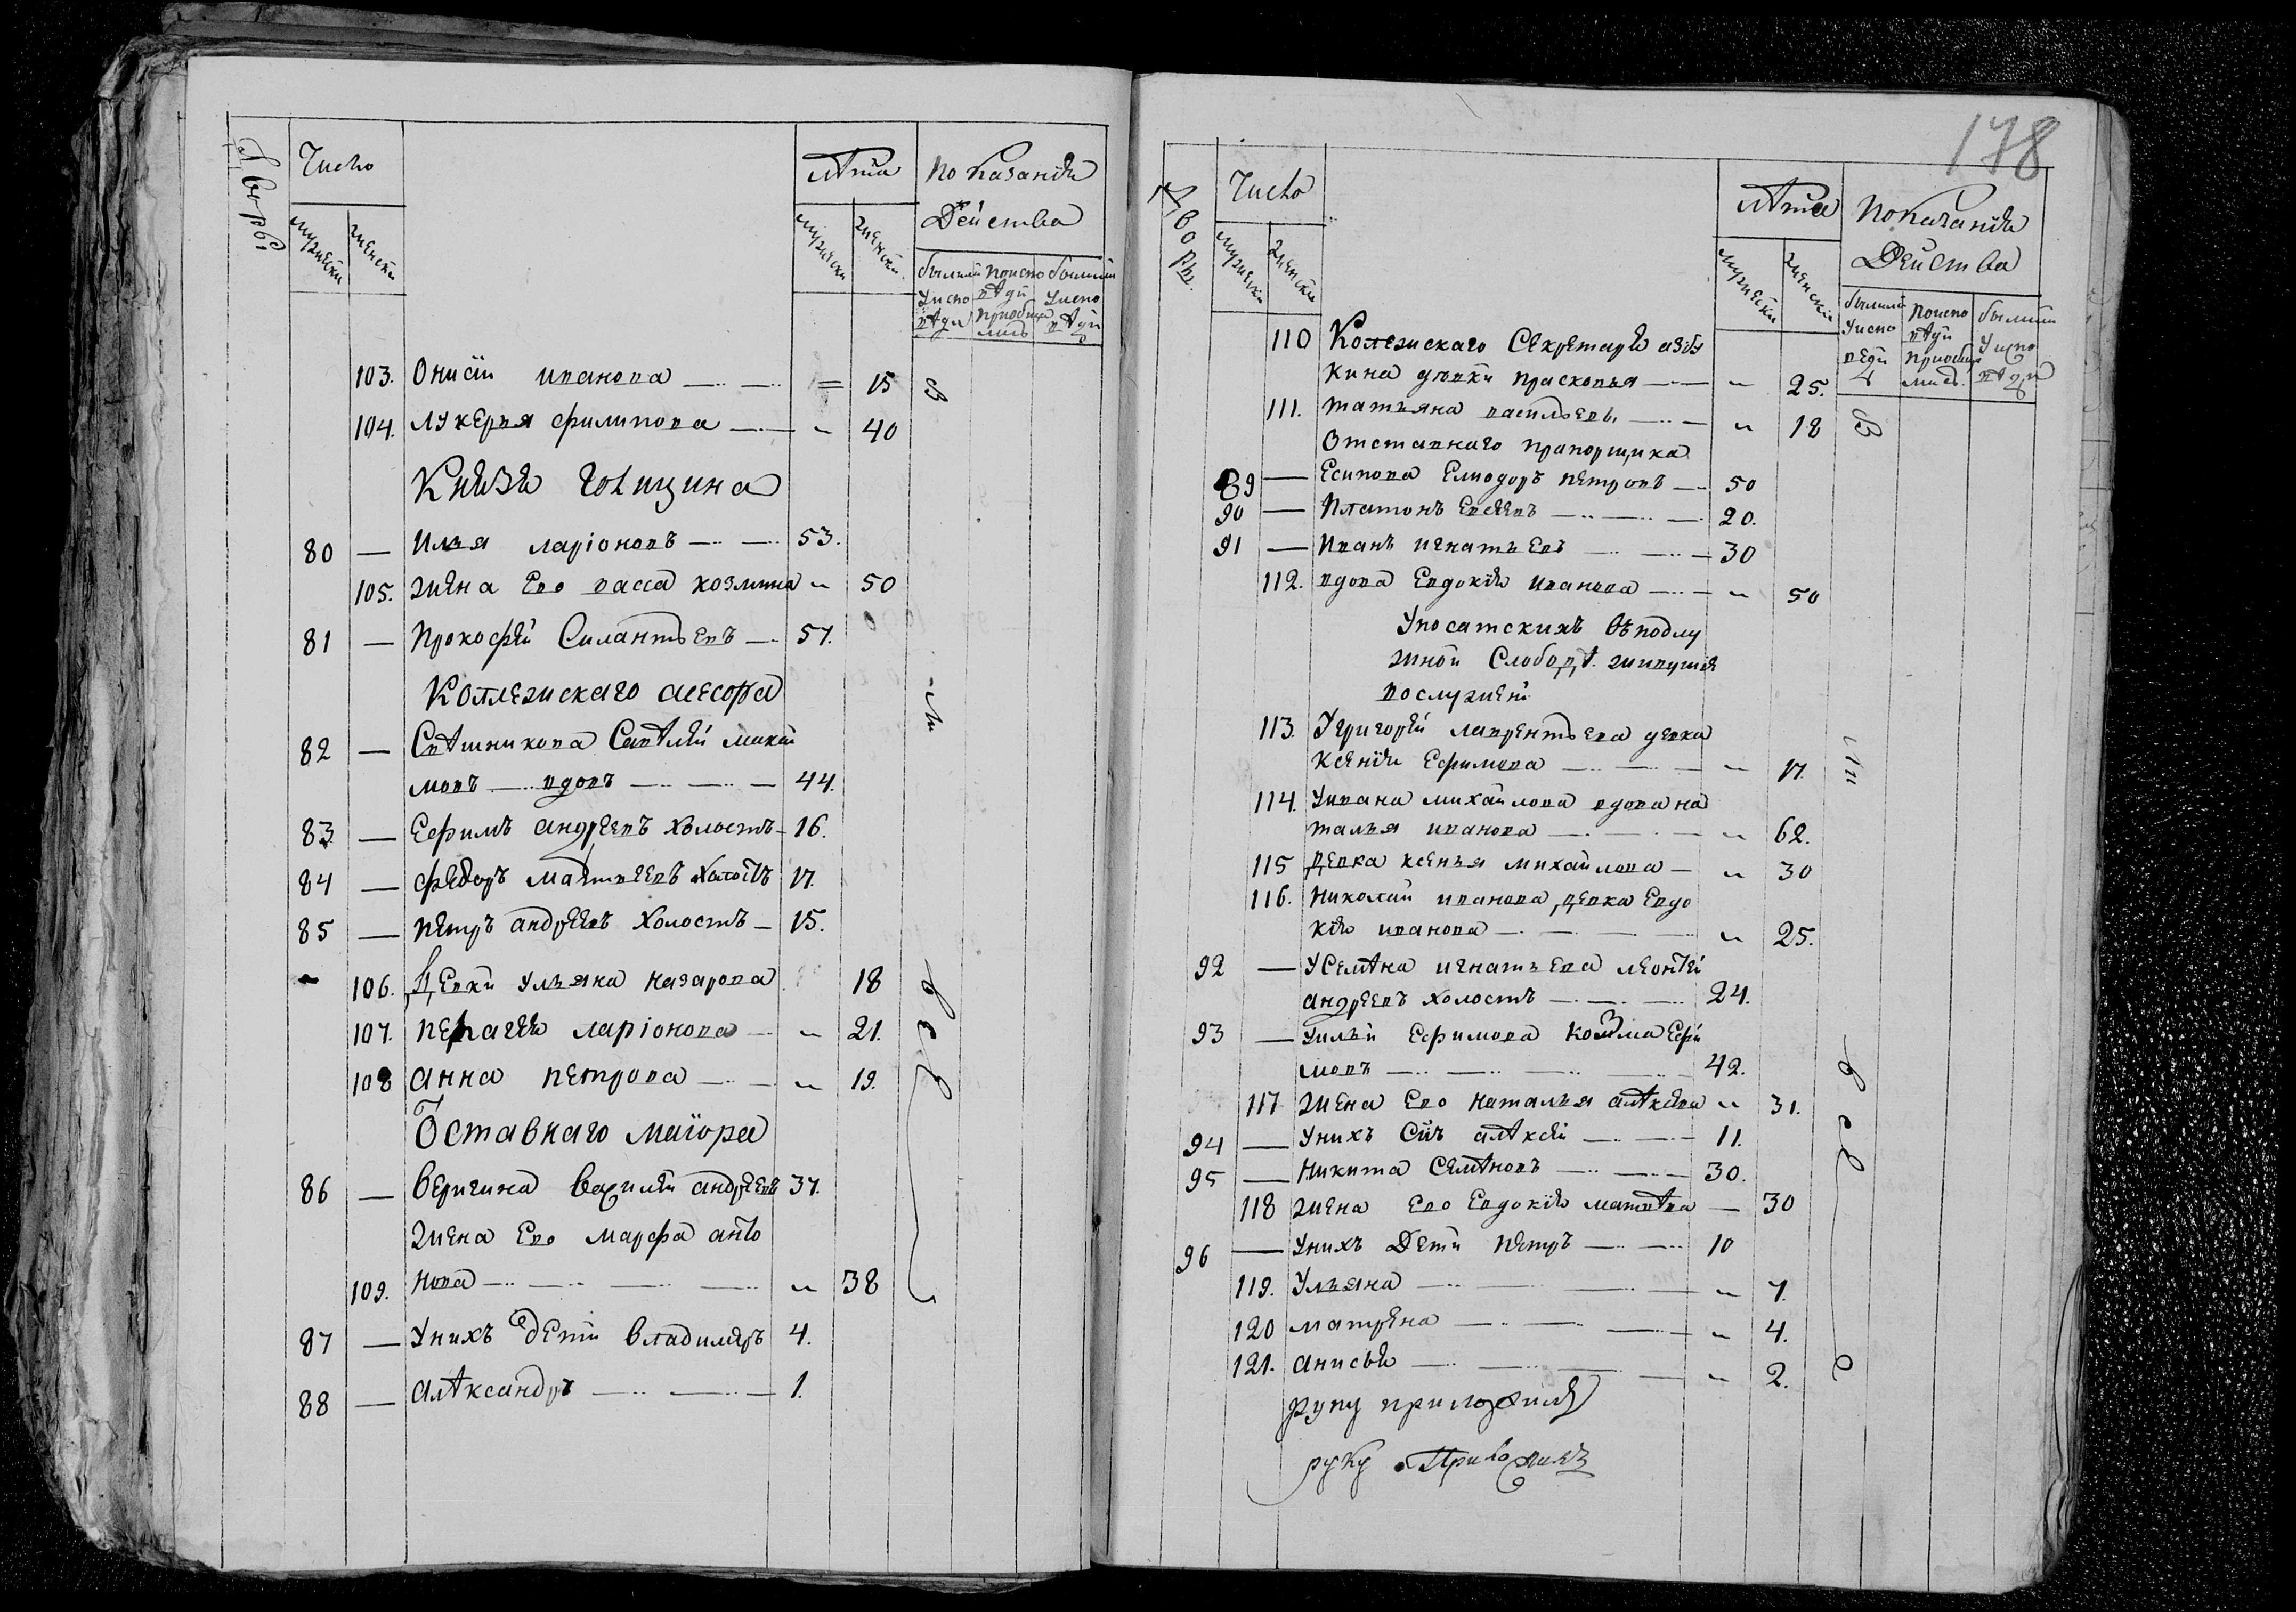 Дворы
Число
мужески
женски
Лѣта
мужески
женски
Показаніи
Действа
бывши
У испо
вѣди
Поиспо
вѣди
приобщи
лись
бывши
У испо
вѣди
103. Онисіи иванова 15
104. лукеръя филипова 40
Князя Голицина
80 Илья ларіоновъ 53.
105. жена Ево васса козмина 50
81 Прокофѣй Силантьевъ 57.
Коллежискаго асесора
82 Свѣшникова Савѣлѣй макси
мовъ вдовъ 44.
83 Ефимъ андреевъ холостъ 16.
84 федоръ матвеевъ холостъ 17.
85 петръ андреевъ холостъ 15.
106. Девки ульяна назарова 18
107. пелагея ларіонова 21.
108 анна петрова 19.
Оставнаго маіора
86 веригина василѣй андреевъ 37.
жена Ево марфа анто
109. нова 38
87 Унихъ дети владимиръ 4.
88 алѣксандръ 1.
178
Дворы
Число
мужески
женски
Лѣта
мужески
женски
Показаніи
Действа
бывши
У испо
веди
Поиспо
вѣди
приобщи
лись
бывши
У испо
вѣди
110 Колежискаго Секретаря
кина дѣвки прасковья 25.
111. татьяна васильева 18
Отставнаго прапорщика
89 Есипова Елиодоръ петровъ 50
90 Платонъ Евсеевъ 20.
91 Иванъ игнатьевъ 30
112. вдова Евдокія иванова 50
Упосатскихъ въподлу
жной Слободѣ живущия
вослужени
113. Угригорѣи лаврентьева девка
ксения Ефимова 17.
114. Уивана михайлова вдова на
талья иванова 62.
115 девка ксенья михайлова 30
116. николаи иванова девка Евдо
кия иванова 25.
92 УСемѣна игнатьева леонтѣй
андреевъ холостъ 24.
93 Уильи Ефимова козма Ефи
мовъ 42.
117 жена Ево наталья алѣксева 31.
94 Унихъ Сынъ алѣксѣй 11.
95 Никита Семѣновъ 30.
118 жена Ево Евдокия матвѣва 30
96 Унихъ Дети петръ 10
119. Ульяна 7.
120 матрена 4.
121. анисья 2.
руку приложилъ
руку Приложилъ